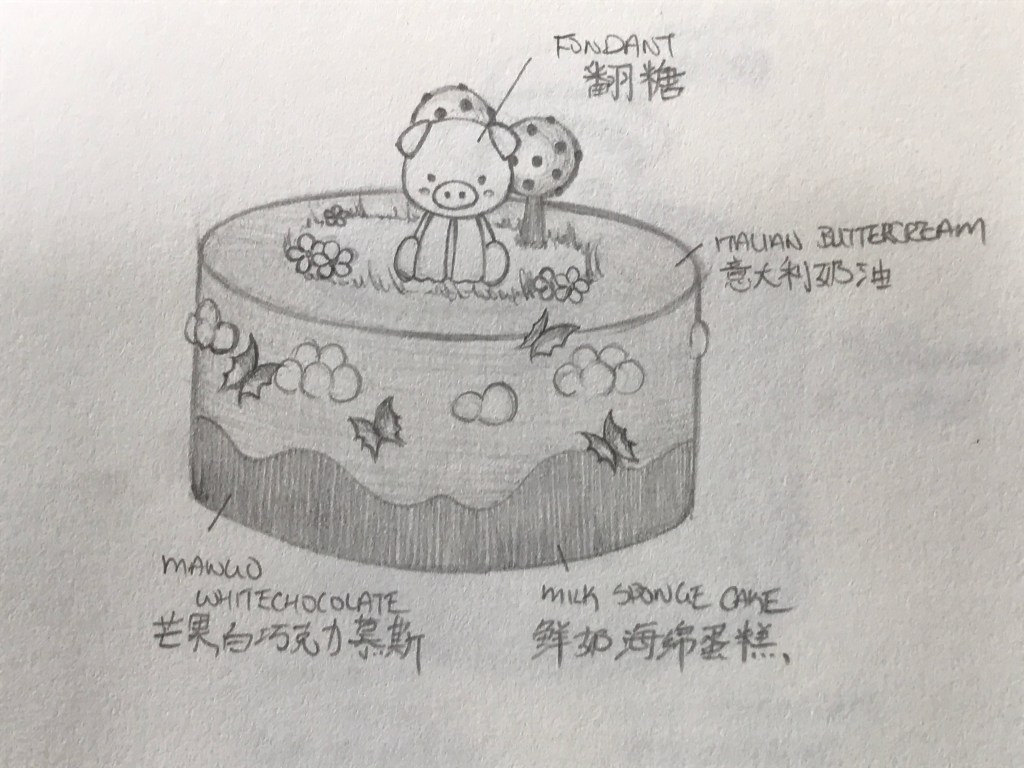 FONDANT
翻糖
ITALIAN BUTTERCREAM
意大利奶油
MANGO
WHITECHOCOLATE
芒果白巧克力慕斯
MILK SPONGE CAKE
鲜奶海绵蛋糕、